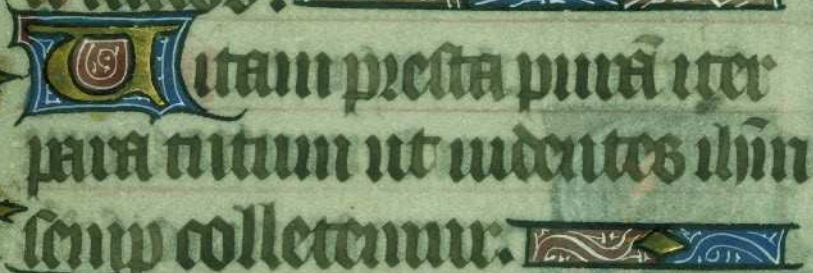 Uitam presta purā iter
para tutum ut uidentes ihm̄
semp colletemur.